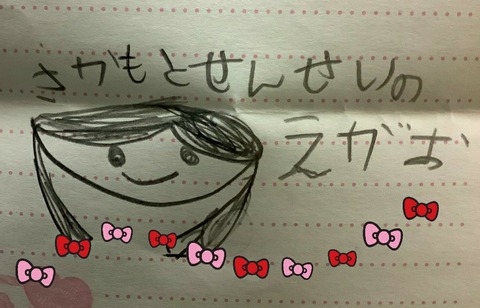 さかもとせんせいの
えがお